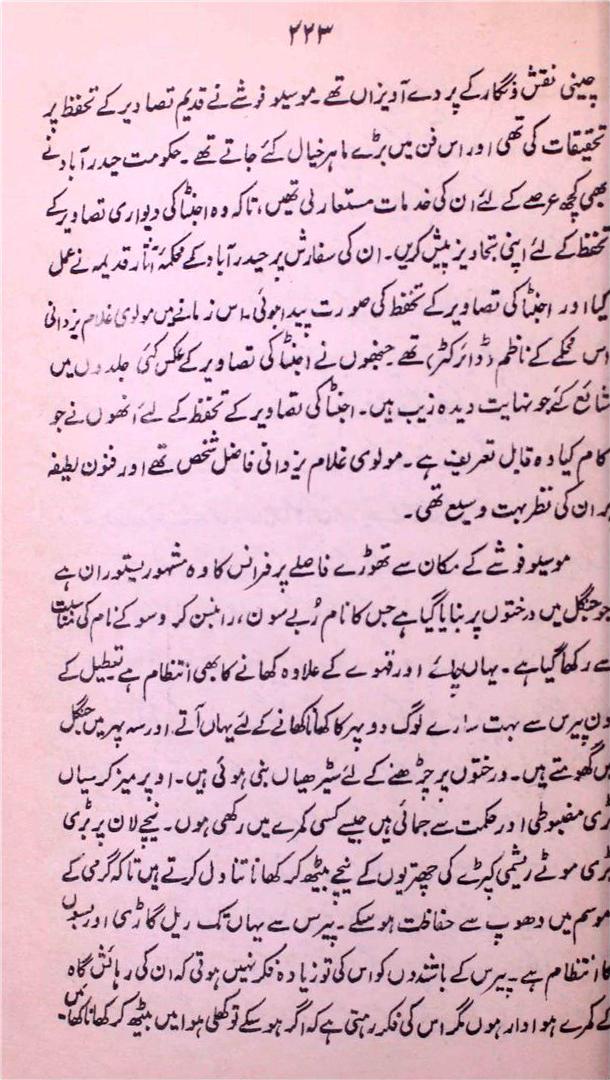 ۲۲۳
چینی نقش و نگار کے پردے آویزاں تھے۔ موسیو فوشے نے قدیم تصاویر کے تحفظ پر
تحقیقات کی تھی اور اس فن میں بڑے ماہر خیال کئے جاتے تھے۔ حکومت حیدرآباد نے
بھی کچھ عرصے کے لئے ان کی خدمات مستعار لی تھیں، تاکہ وہ اجنٹا کی دیواری تصاویر کے
تحفظ کے لئے اپنی تجاویز پیش کریں۔ ان کی سفارش پر حیدرآباد کے محکمۂ آثار قدیمہ نے عمل
کیا اور اجنٹا کی تصاویر کے تحفظ کی صورت پیدا ہوئی۔ اس زمانے میں مولوی غلام یزدانی
اس محکمے کے ناظم (ڈائرکٹر) تھے۔ جنھوں نے اجنٹا کی تصاویر کے عکس کئی جلدوں میں
شائع کئے جو نہایت دیدہ زیب ہیں۔ اجنٹا کی تصاویر کے تحفظ کے لئے انھوں نے جو
کام کیا وہ قابل تعریف ہے۔ مولوی غلام یزدانی فاضل شخص تھے اور فنون لطیفہ
پر ان کی نظر بہت وسیع تھی۔
موسیو فوشے کے مکان سے تھوڑے فاصلے پر فرانس کا وہ مشہور ریستوران ہے
جو جنگل میں درختوں پر بنایا گیا ہے جس کا نام رُبے سون، رابنسن کروسو کے نام کی مناسبت
سے رکھا گیا ہے۔ یہاں چائے اور قہوے کے علاوہ کھانے کا بھی انتظام ہے تعطیل کے
دن پیرس سے بہت سارے لوگ دوپہر کا کھانا کھانے کے لئے یہاں آتے اور سہ پہر میں جنگل
میں گھومتے ہیں۔ درختوں پر چڑھنے کے لئے سیڑھیاں بنی ہوئی ہیں۔ اوپر میز کرسیاں
بڑی مضبوطی اور حکمت سے جمائی ہیں جیسے کسی کمرے میں رکھی ہوں۔ نیچے لان پر بڑی
بڑی موٹے ریشمی کپڑے کی چھتریوں کے نیچے بیٹھ کر کھانا تناول کرتے ہیں تاکہ گرمی کے
موسم میں دھوپ سے حفاظت ہو سکے۔ پیرس سے یہاں تک ریل گاڑی اور بسوں
کا انتظام ہے۔ پیرس کے باشندوں کو اس کی تو زیادہ فکر نہیں ہوتی کہ ان کی رہائش گاہ
کے کمرے ہوادار ہوں مگر اس کی فکر رہتی ہے کہ اگر ہو سکے تو کھلی ہوا میں بیٹھ کر کھانا کھائیں۔